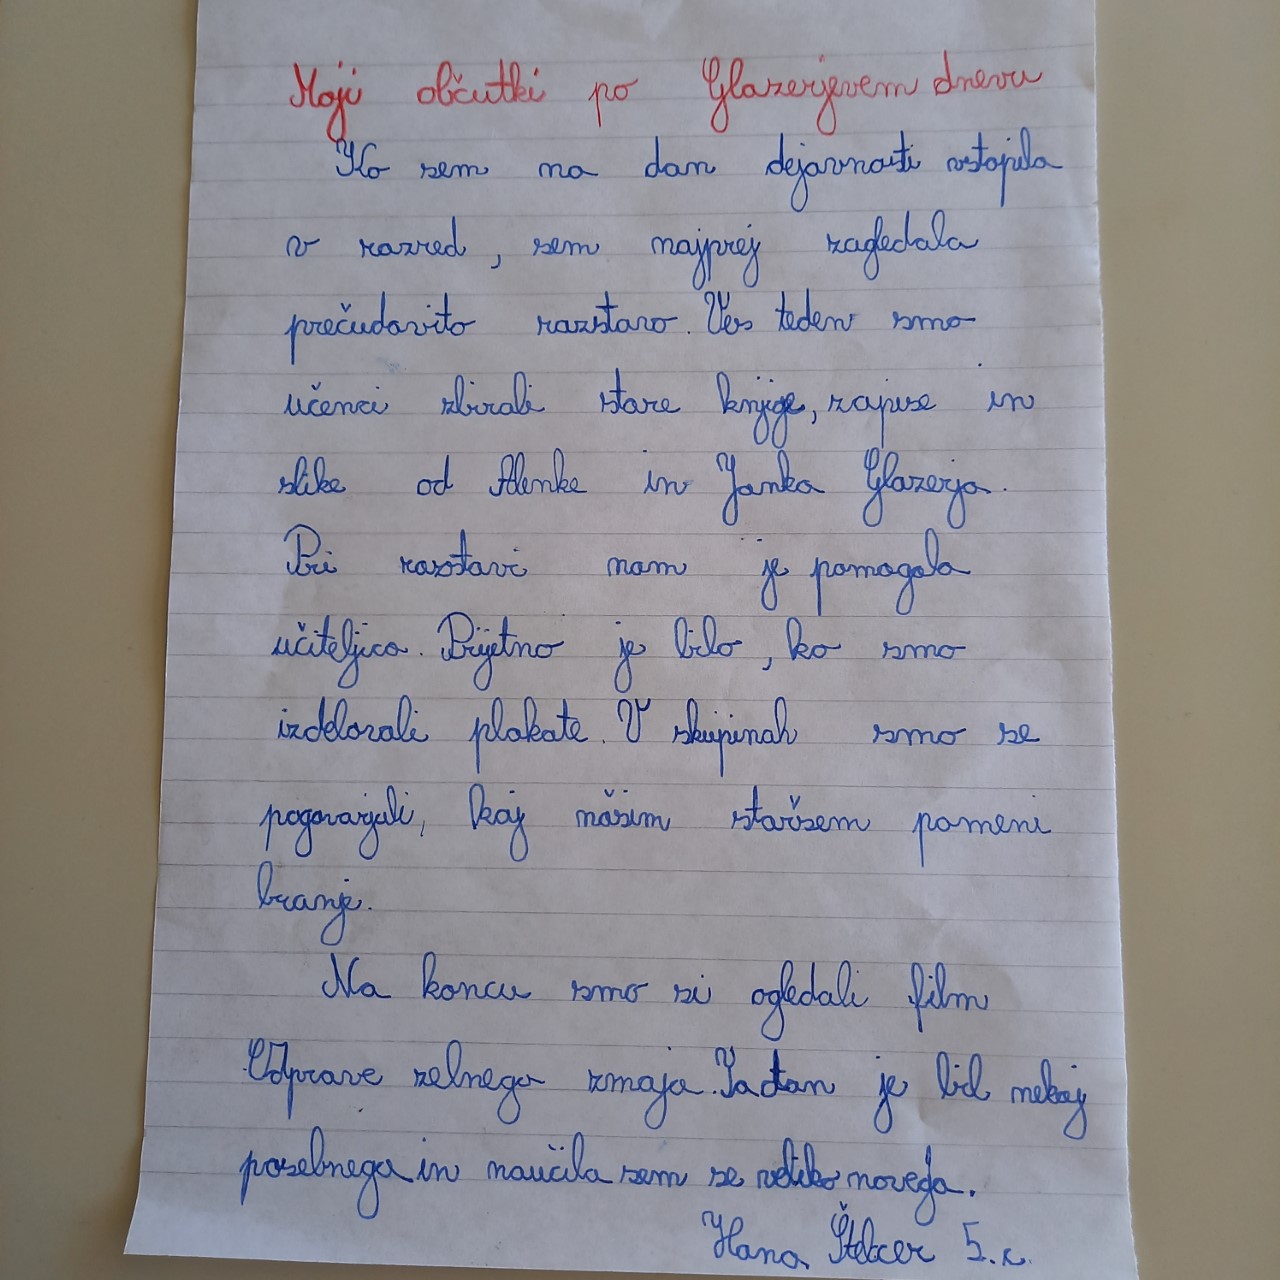 Moji občutki po Glazerjevem dnevu
Ko sem na dan dejavnosti vstopila
v razred, sem najprej zagledala
prečudovito razstavo. Ves teden smo
učenci zbirali stare knjige, zapise in
slike od Alenke in Janka Glazerja.
Pri razstavi nam je pomagala
učiteljica. Prijetno je bilo, ko smo
izdelovali plakate. V skupinah smo se
pogovarjali, kaj našim staršem pomeni
branje.
Na koncu smo si ogledali film
Odprave zelnega zmaja. Ta dan je bil nekaj
posebnega in naučila sem se veliko novega.
Hana Štelcer 5. r.